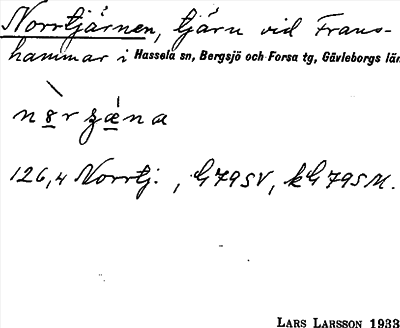 Norrtjärnen, tjärn vid Frans-
hammar i Hassela sn, Bergsjö och Forsa tg, Gävleborgs län
126,4 Norrtj. , G79SV, kG79SM.
LARS LARSSON 1933